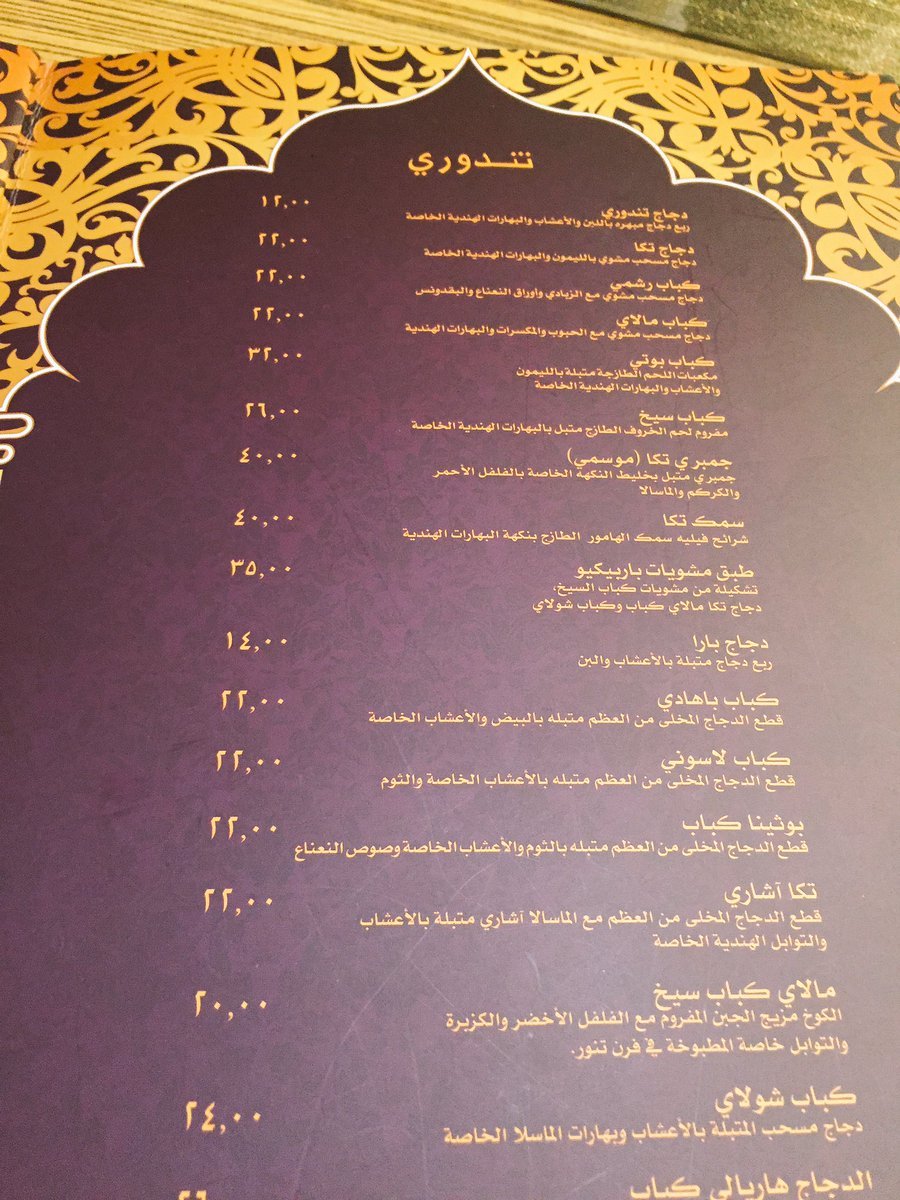 تندوري
دجاج تندوري ١٢,٠٠
ربع دجاج مبهره باللبن والأعشاب والبهارات الهندية الخاصة
دجاج تكا ٢٢,٠٠
دجاج مسحب مشوي بالليمون والبهارات الهندية الخاصة
كباب رشمي ٢٢,٠٠
دجاج مسحب مشوي مع الزبادي وأوراق النعناع والبقدونس
كباب مالاي ٢٢,٠٠
دجاج مسحب مشوي مع الحبوب والمكسرات والبهارات الهندية
كباب بوتي ٣٢,٠٠
مكعبات اللحم الطازجة متبلة بالليمون
والأعشاب والبهارات الهندية الخاصة
كباب سيخ ٢٦,٠٠
مفروم لحم الخروف الطازج متبل بالبهارات الهندية الخاصة
جمبري تكا (موسمي) ٤٠,٠٠
جمبري متبل بخليط النكهه الخاصة بالفلفل الأحمر
والكركم والماسالا
سمك تكا ٤٠,٠٠
شرائح فيليه سمك الهامور الطازج بنكهة البهارات الهندية
طبق مشويات باربيكيو ٣٥,٠٠
تشكيلة من مشويات كباب السيخ،
دجاج تكا مالاي كباب وكباب شولاي
دجاج بارا ١٤,٠٠
ربع دجاج متبلة بالأعشاب والبن
كباب باهادي ٢٢,٠٠
قطع الدجاج المخلى من العظم متبله بالبيض والأعشاب الخاصة
كباب لاسوني ٢٢,٠٠
قطع الدجاج المخلى من العظم متبله بالأعشاب الخاصة والثوم
بوثينا كباب ٢٢,٠٠
قطع الدجاج المخلى من العظم متبله بالثوم والأعشاب الخاصة وصوص النعناع
تكا آشاري ٢٢,٠٠
قطع الدجاج المخلى من العظم مع الماسالا آشاري متبلة بالأعشاب
والتوابل الهندية الخاصة
مالاي كباب سيخ ٢٠,٠٠
الكوخ مزيج الجبن المفروم مع الفلفل الأخضر والكزبرة
والتوابل خاصة المطبوخة في فرن تنور.
كباب شولاي ٢٤,٠٠
دجاج مسحب المتبلة بالأعشاب وبهارات الماسلا الخاصة
الدجاج هاريالي كباب